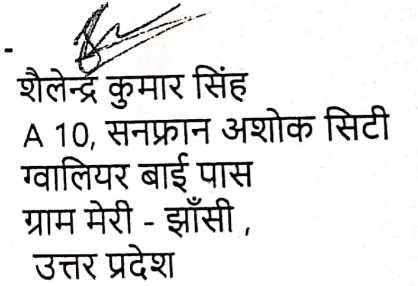 शैलेन्द्र कुमार सिंह
A 10, सनफ्रान अशोक सिटी
ग्वालियर बाई पास
ग्राम मेरी - झाँसी ,
उत्तर प्रदेश